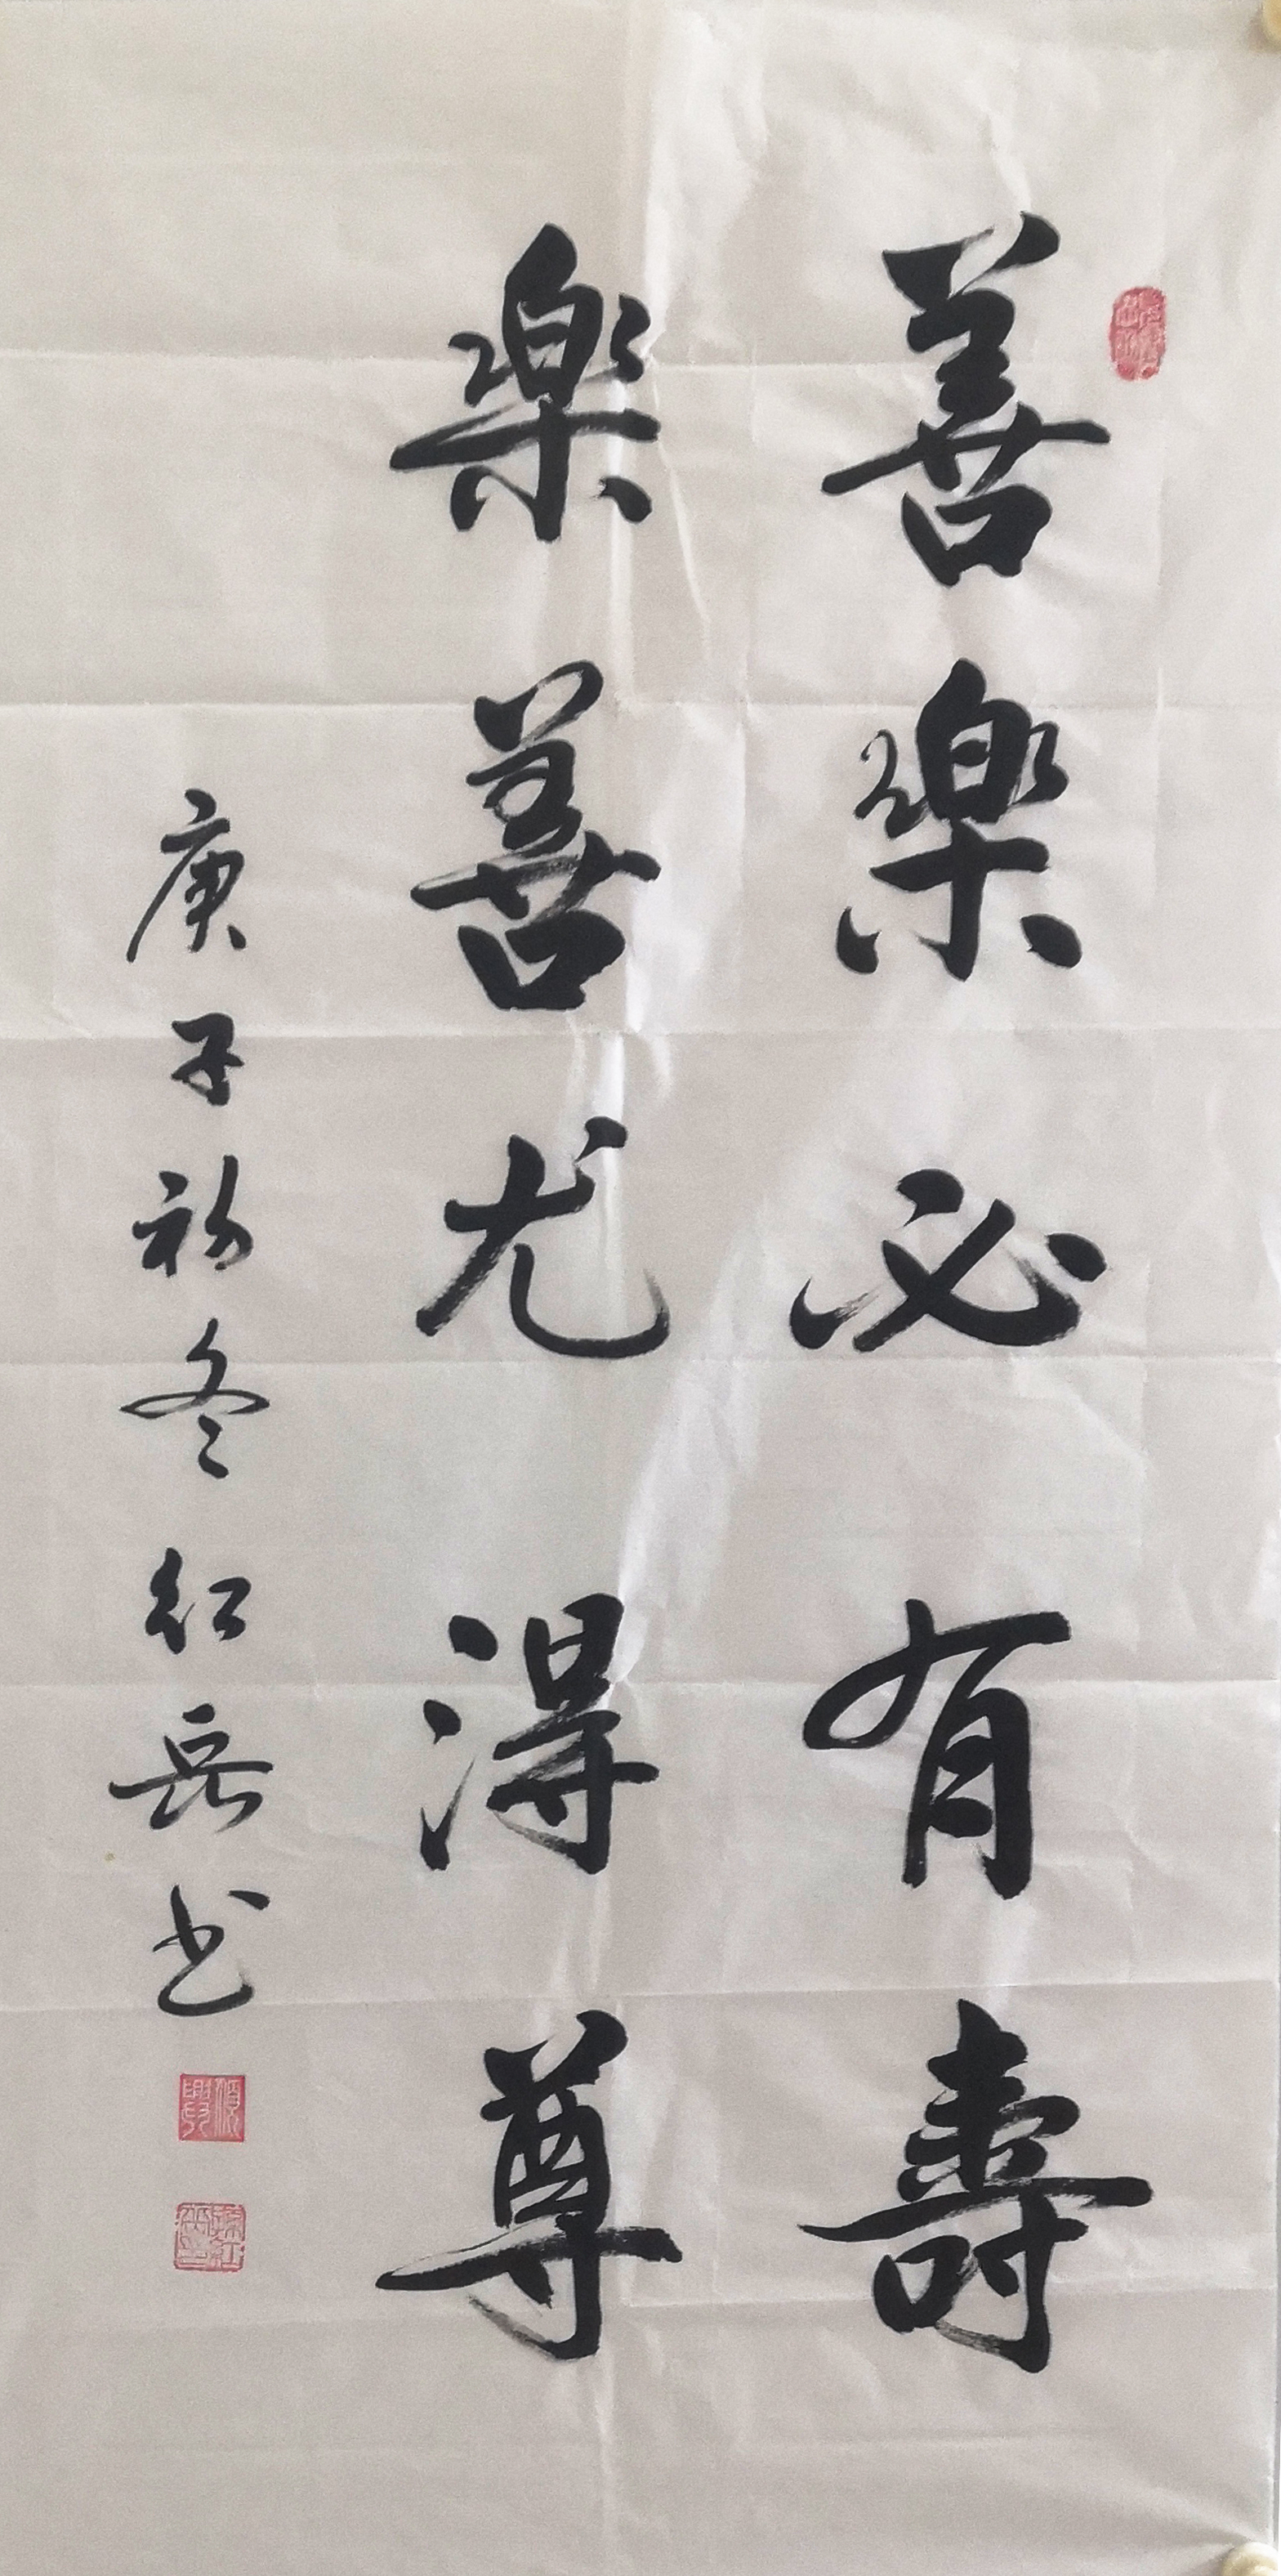 善樂必有壽
樂善尤得尊
庚子初冬红岳书